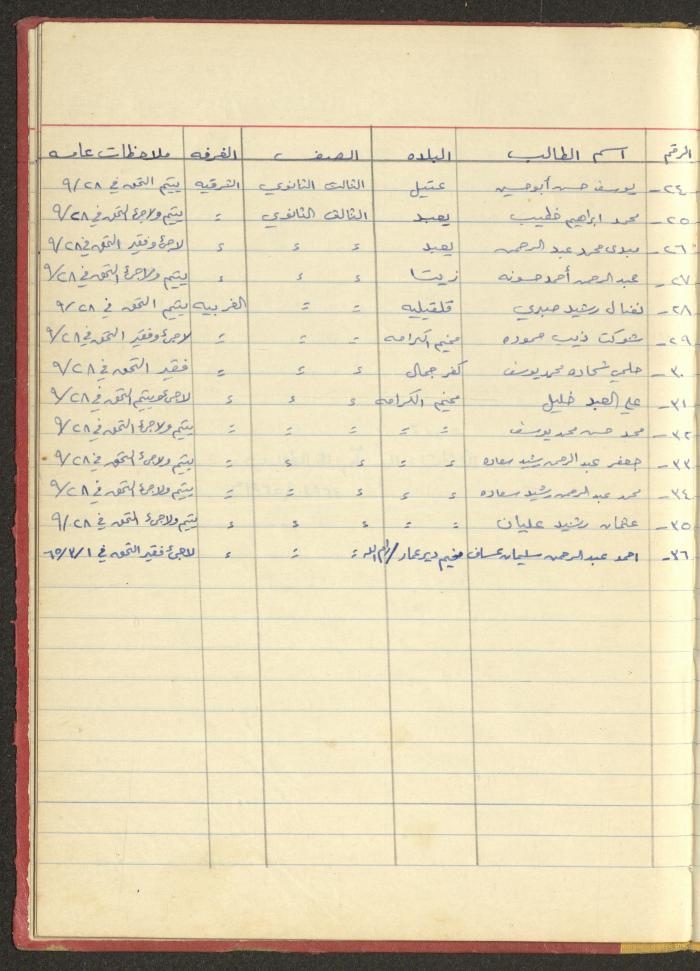 الرقم اسم الطالب البلده الصف الغرفه ملاحظات عامه
٢٤- يوسف حسن أبوحسين عتيل الثالث الثانوي الشرقيه يتيم التحق في ٩/٢٨
٢٥- محمد ابراهيم خطيب يعبد الثالث الثانوي = يتيم ولاجئ التحق في ٩/٢٨
٢٦- مهدي محمد عبد الرحمن يعبد = = = لاجئ وفقير التحق في ٩/٢٨
٢٧- عبد الرحمن أحمد حسونه زيتا = = = يتيم ولاجئ التحق في ٩/٢٨
٢٨- نضال رشيد صبري قلقيليه = = الغربيه يتيم التحق في ٩/٢٨
٢٩- شوكت ذيب حموده مخيم الكرامه = = = لاجئ وفقير التحق في ٩/٢٨
٣٠- حلمي شحاده محمد يوسف كفر جمال = = = فقير التحق في ٩/٢٨
٣١- علي العبد خليل مخيم الكرامه = = = لاجئ ويتيم التحق في ٩/٢٨
٣٢- محمد حسن محمد يوسف = = = = = يتيم ولاجئ التحق في ٩/٢٨
٣٣- جعفر عبد الرحمن رشيد سعاده = = = = = يتيم ولاجئ التحق في ٩/٢٨
٣٤- محمد عبد الرحمن رشيد سعاده = = = = = يتيم ولاجئ التحق في ٩/٢٨
٣٥- عثمان رشيد عليان = = = = = يتيم ولاجئ التحق في ٩/٢٨
٣٦- احمد عبد الرحمن سليمان عساف مخيم دير عمار/رام الله = = = لاجئ فقير التحق في ٦٥/٣/١